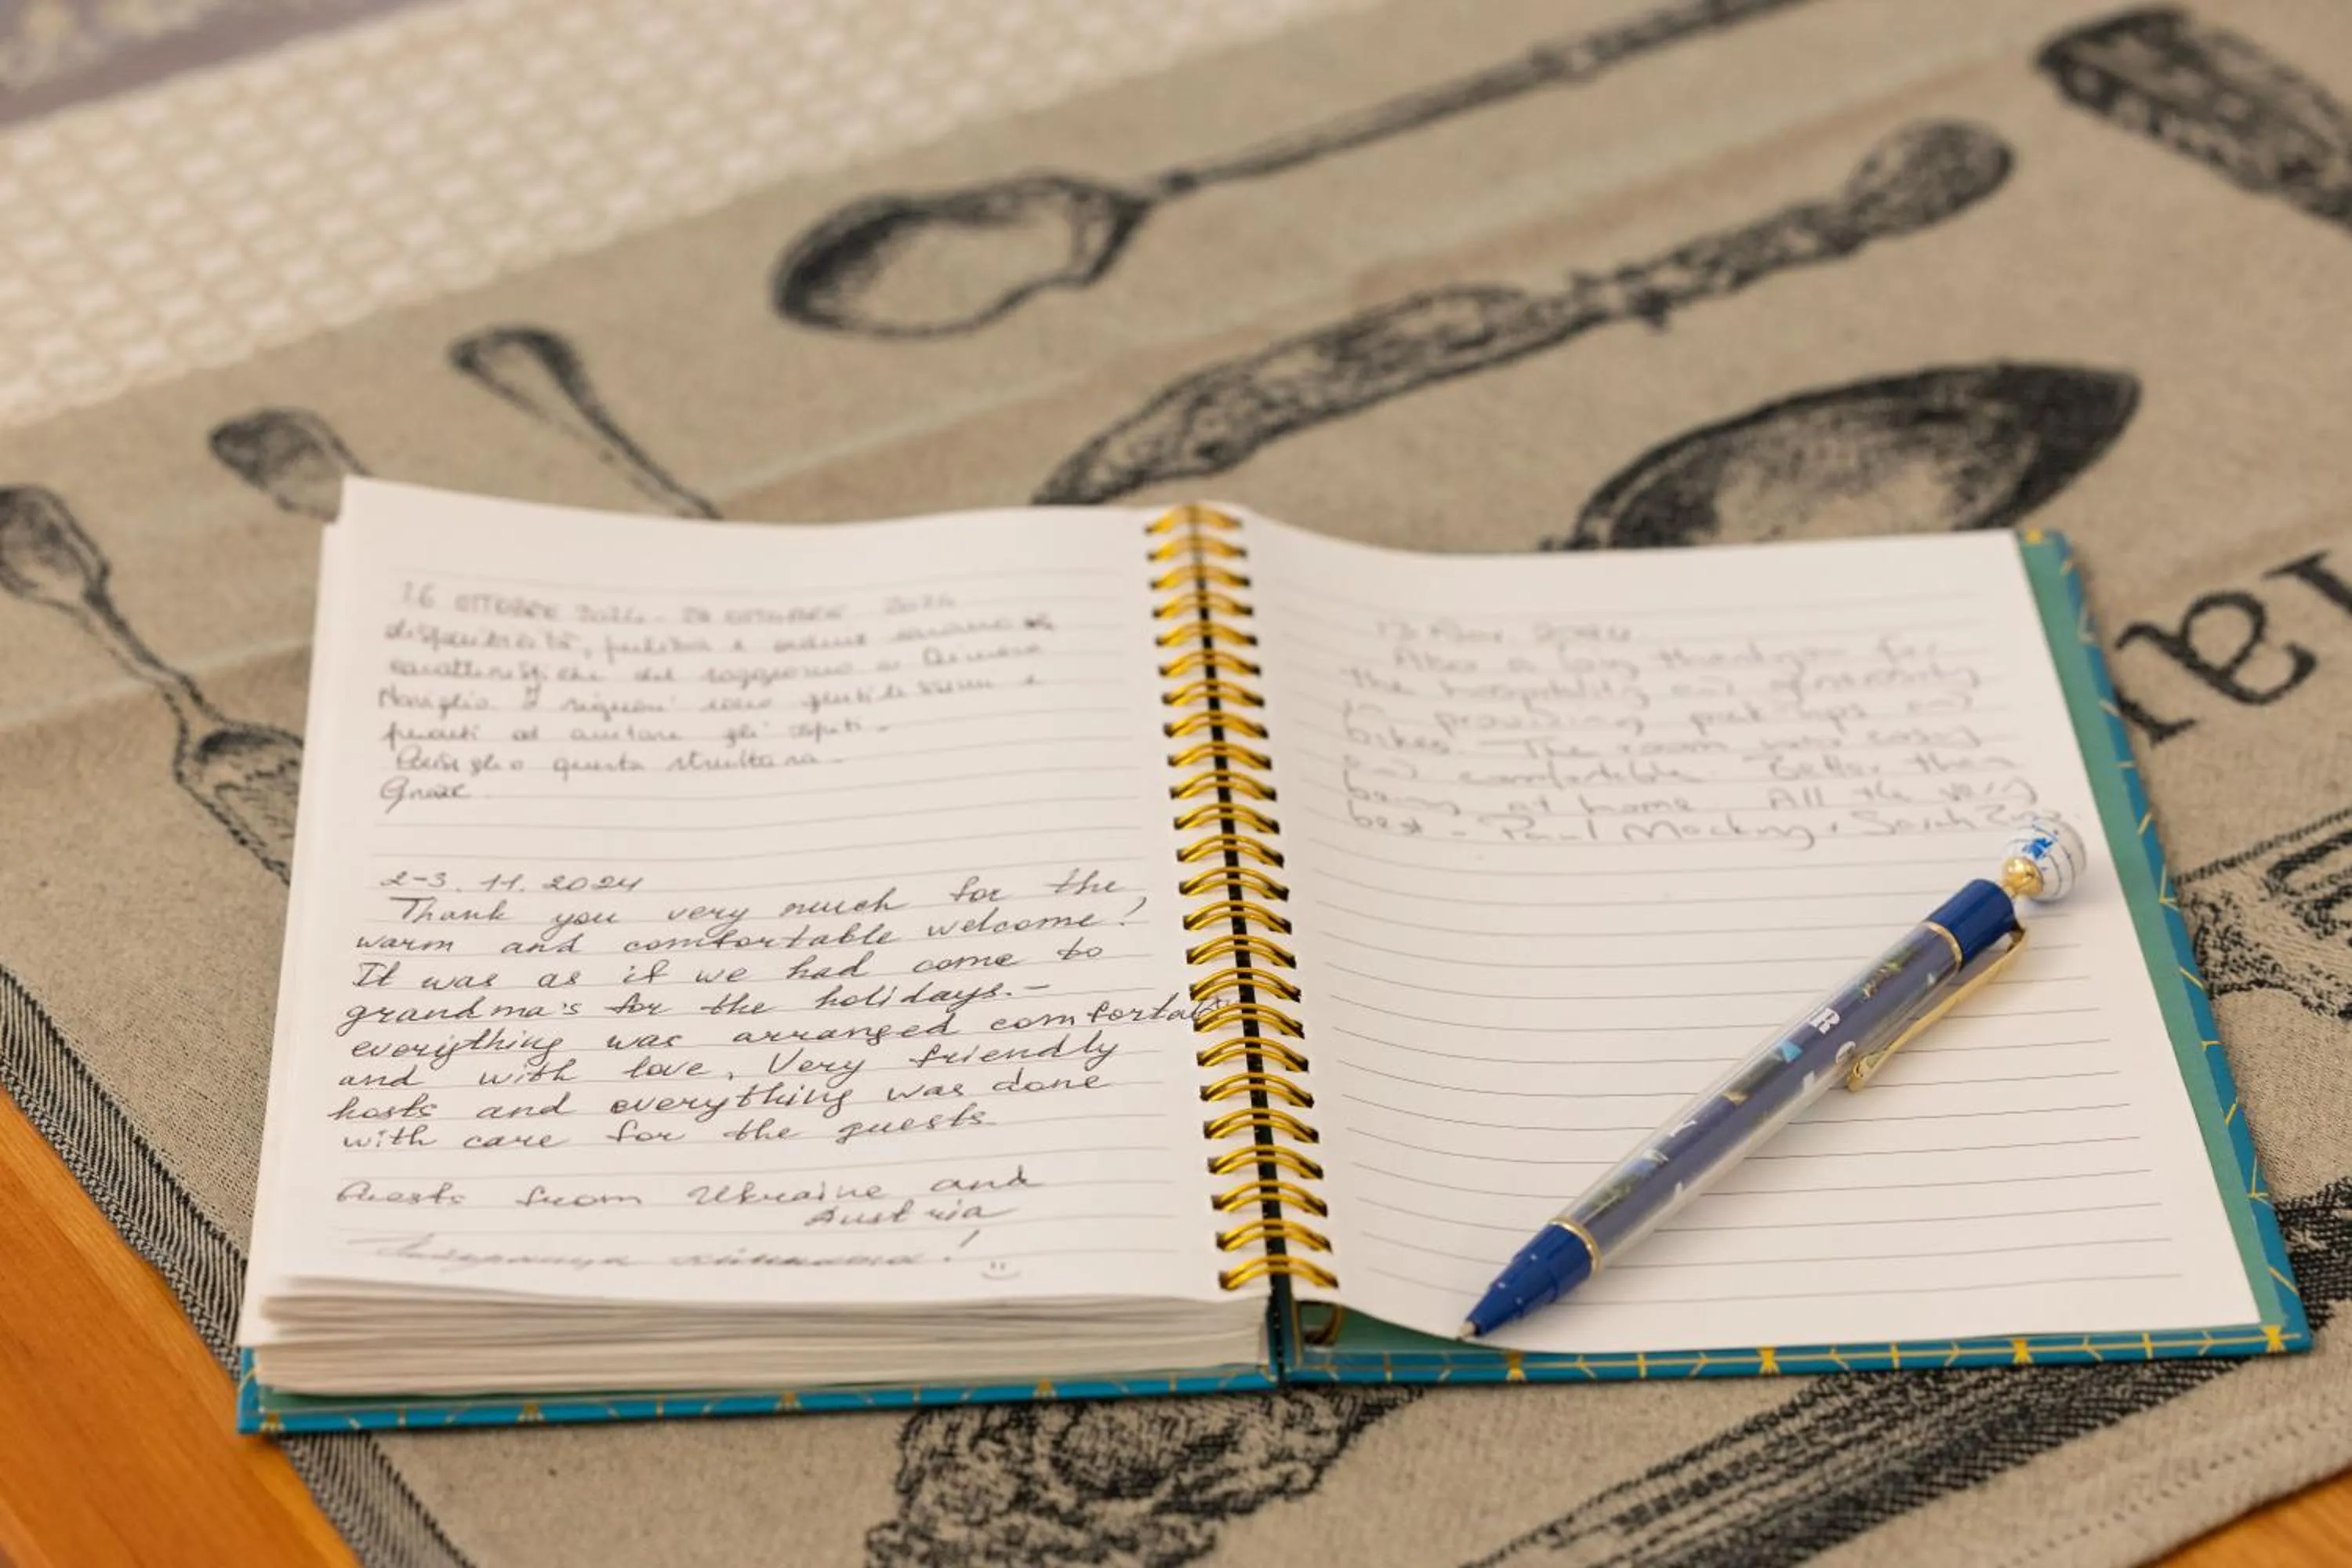 26 OTTOBRE 2024 - 28 OTTOBRE 2024
disponibilità, pulizia e ordine saranno le
caratteristiche del soggiorno a Dimora
Naviglio. I signori sono gentilissimi e
pronti ad aiutare gli ospiti.
Consiglio questa struttura.
Grazie.
2-3. 11. 2024
Thank you very much for the
warm and comfortable welcome!
It was as if we had come to
grandma's for the holidays. -
everything was arranged comfortable
and with love, Very friendly
hosts and everything was done
with care for the guests
Guests from Ukraine and
Austria
13 Nov 2024
Also a big thankyou for
the hospitality and generosity
in providing pick-ups and
bikes. The room was easy
and comfortable. Better than
being at home. All the very
best - Paul Mocking + Sarah
R